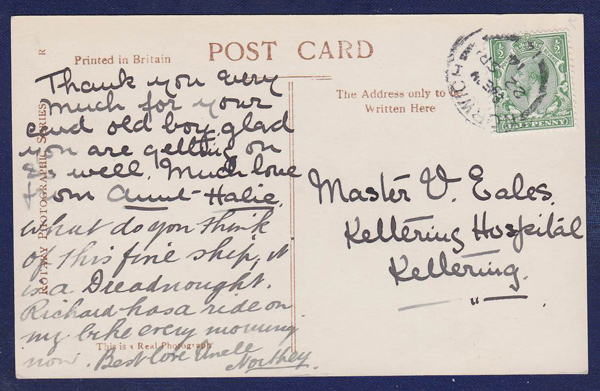 Printed in Britain
POST CARD
The Address only to
Written Here
ROTARY PHOTOGRAPHIC SERIES
R
HALFPENNY
NORWICH
24
14
Thank you very
much for your
card old boy, glad
you are getting on
so well. Much love
from Aunt Halie.
What do you think
of this fine ship, it
is a Dreadnought.
Richard has a ride on
my bike every morning
now. Best love Uncle
Northey.
This is a Real Photograph
Master V. Eales.
Kettering Hospital
Kettering.